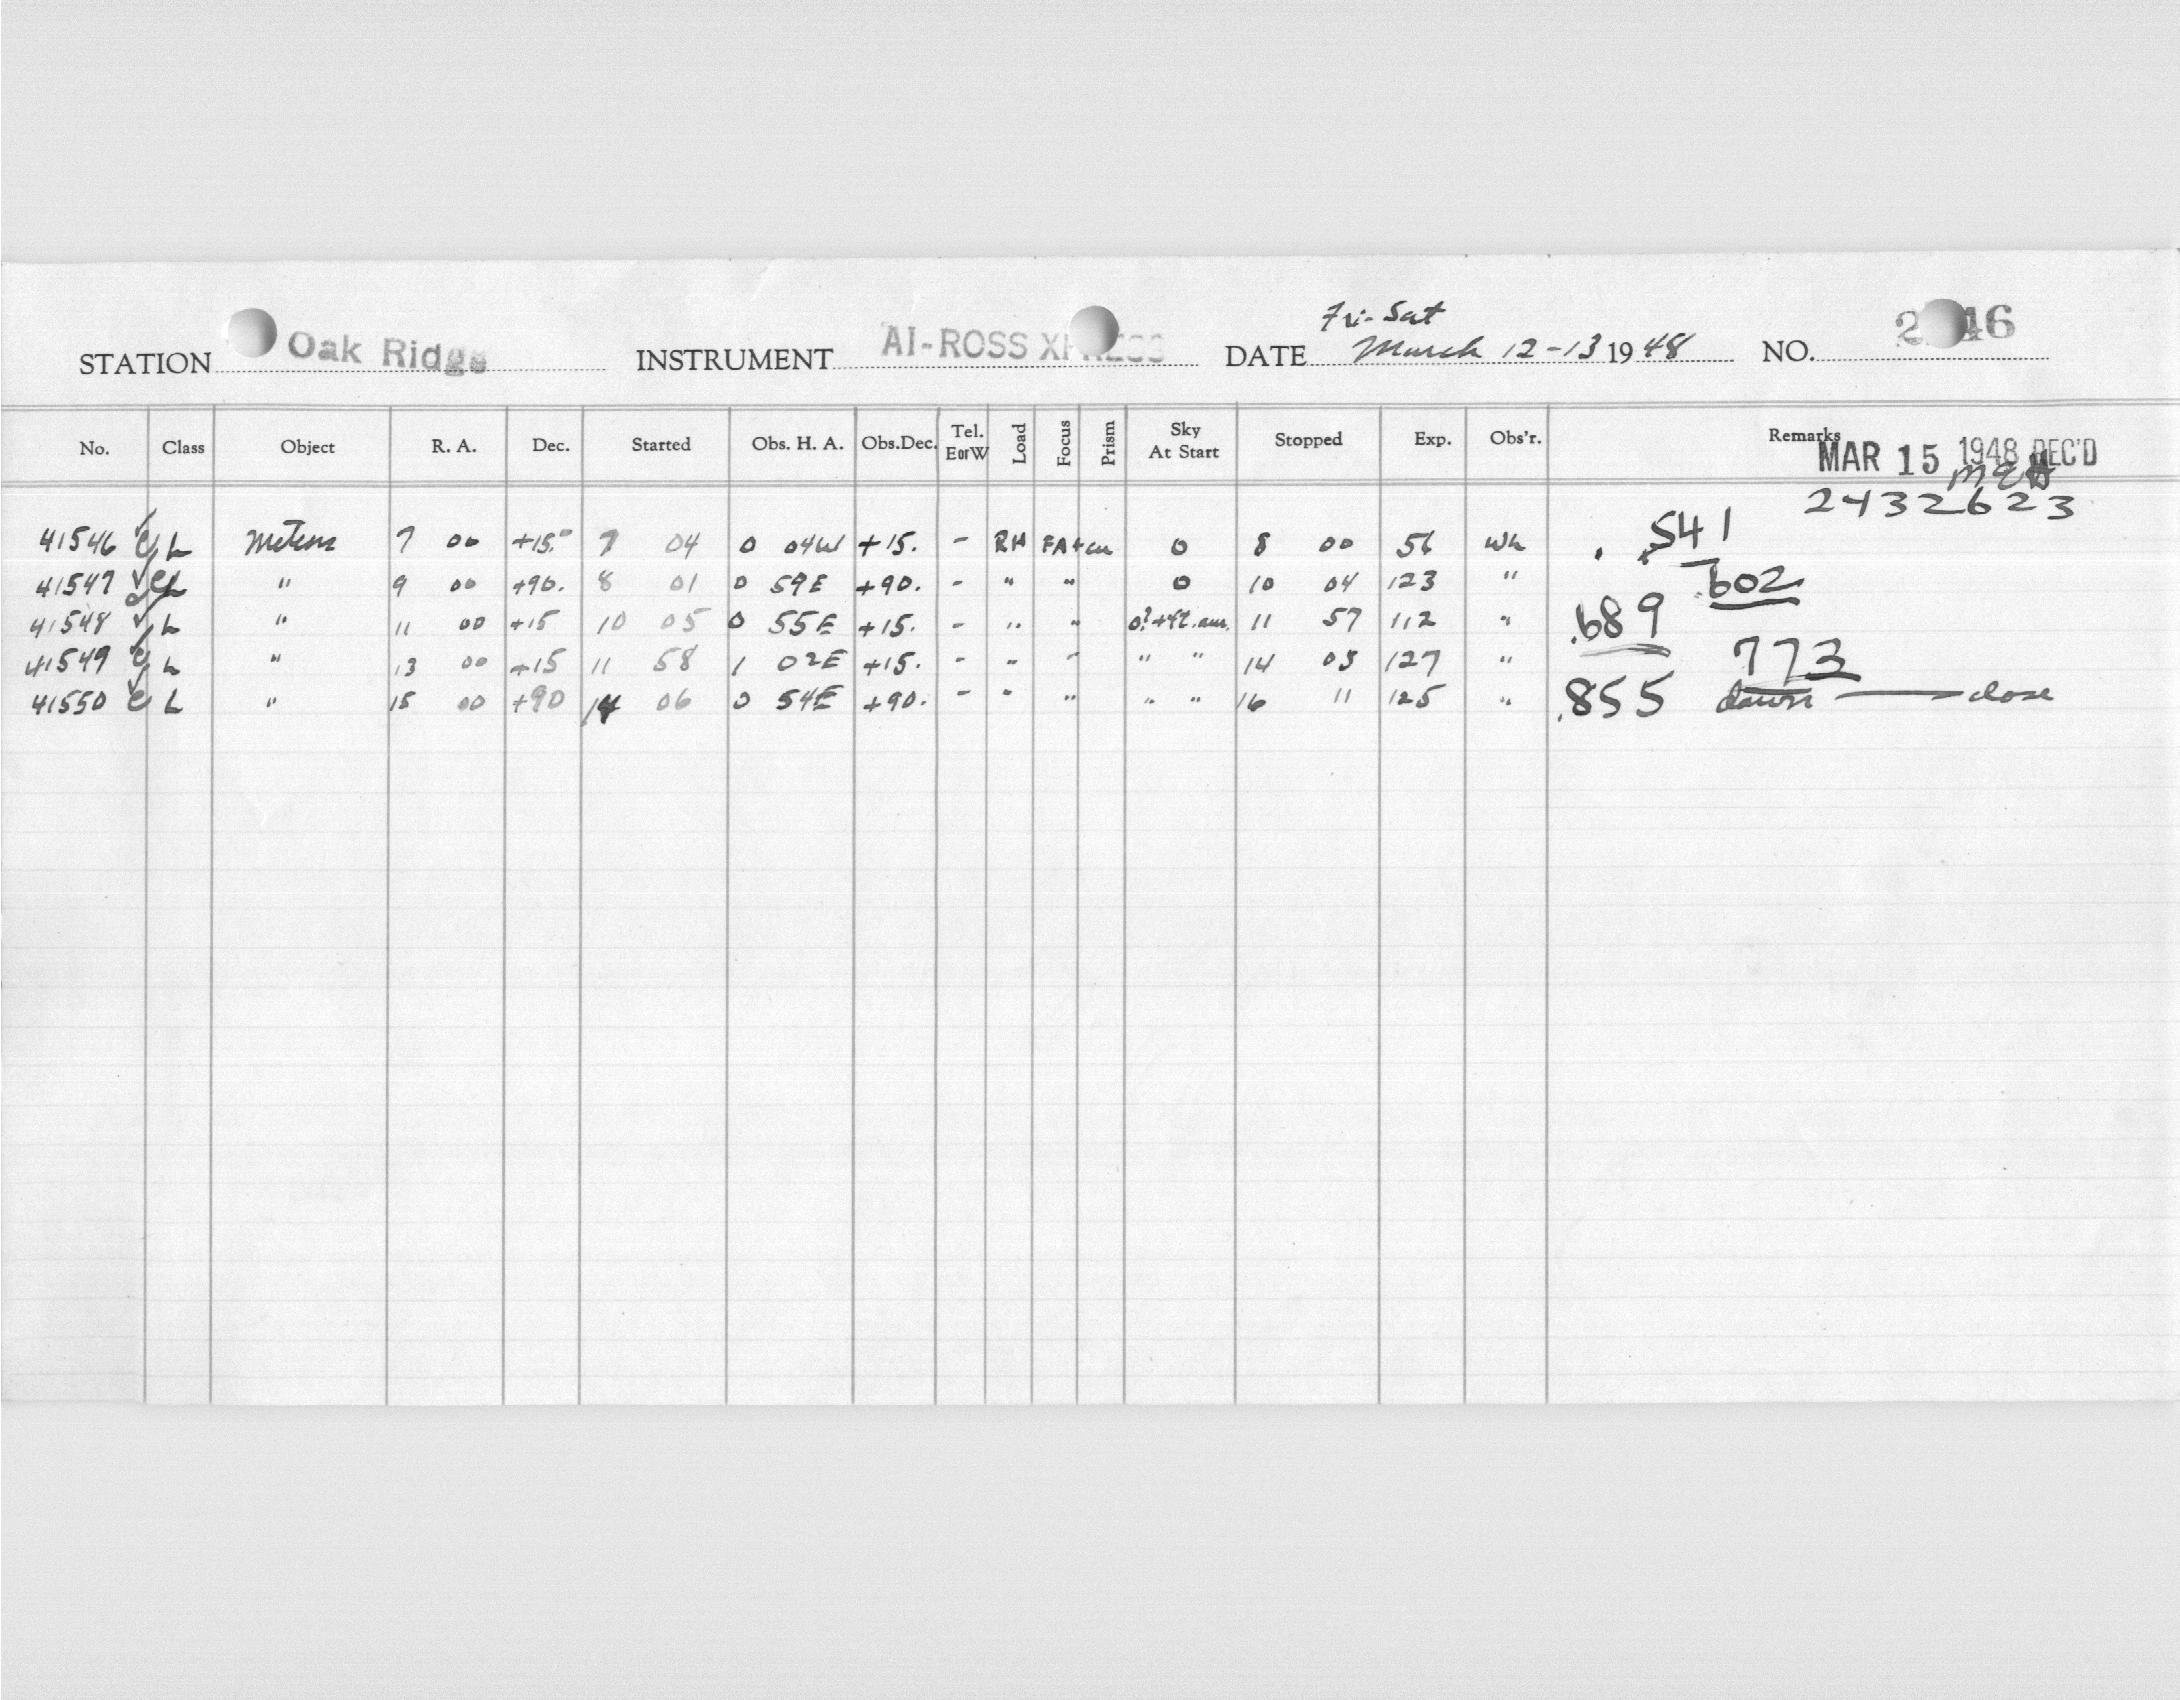 Fri-Sat
STATION Oak Ridge INSTRUMENT AI-ROSS DATE March 12-13 1948 NO. 46
No. Class Object R. A. Dec. Started Obs. H. A. Obs.Dec. Tel. EorW Load Focus Prism Sky At Start Stopped Exp. Obs'r. Remarks
MAR 15 1948 REC'D
2432623
41546 L Meteors 7 00 +15° 7 04 0 04W +15. - RH FA+cu 0 8 00 56 Wh .541
41547 L " 9 00 +90. 8 01 0 59E +90. - " " 0 10 04 123 " .602
41548 L " 11 00 +15 10 05 0 55E +15. - " " 0?+ 11 57 112 " .689
41549 L " 13 00 +15 11 58 1 02E +15. - " " " " 14 05 127 " 773
41550 L " 15 00 +90 14 06 0 54E +90. - " " " " 16 11 125 " .855 dawn — close